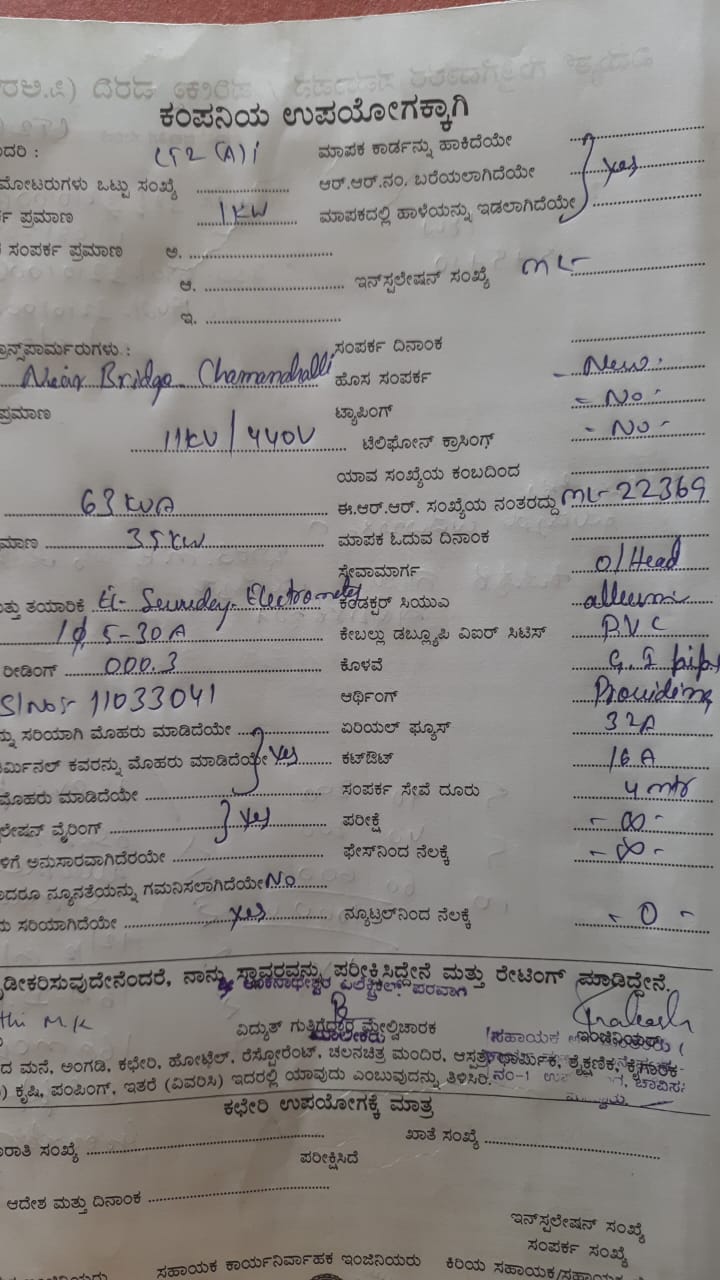 ಕಂಪನಿಯ ಉಪಯೋಗಕ್ಕಾಗಿ
ದರಿ : LT2 (A) i ಮಾಪಕ ಕಾರ್ಡನ್ನು ಹಾಕಿದೆಯೇ
ಮೋಟರುಗಳು ಒಟ್ಟು ಸಂಖ್ಯೆ ಆರ್.ಆರ್.ನಂ. ಬರೆಯಲಾಗಿದೆಯೇ Yes
ಪ್ರಮಾಣ 1 KW ಮಾಪಕದಲ್ಲಿ ಹಾಳೆಯನ್ನು ಇಡಲಾಗಿದೆಯೇ
ಸಂಪರ್ಕ ಪ್ರಮಾಣ ಅ.
ಆ. ಇನ್‌ಸ್ಟಲೇಷನ್ ಸಂಖ್ಯೆ ML-
ಇ.
ಸಂಪರ್ಕ ದಿನಾಂಕ
ಾನ್ಸ್‌ಪಾರ್ಮರುಗಳು :
Near Bridge Chamanahalli ಹೊಸ ಸಂಪರ್ಕ - New -
ಪ್ರಮಾಣ ಟ್ಯಾಪಿಂಗ್ - No -
11KV / 440V ಟೆಲಿಫೋನ್ ಕ್ರಾಸಿಂಗ್ - No -
ಯಾವ ಸಂಖ್ಯೆಯ ಕಂಬದಿಂದ
63 KVA ಈ.ಆರ್.ಆರ್. ಸಂಖ್ಯೆಯ ನಂತರದ್ದು ML-22369
ಮಾಣ 35 KW ಮಾಪಕ ಓದುವ ದಿನಾಂಕ
ಸೇವಾಮಾರ್ಗ O/Head
ತಯಾರಿಕೆ ಕಂಡಕ್ಟರ್ ಸಿಯುಎ
1ϕ, 5-30A ಕೇಬಲ್ಲು ಡಬ್ಲ್ಯೂಪಿ ವಿಐಆರ್ ಸಿಟಿಸ್ PVC
ರೀಡಿಂಗ್ 000.3 ಕೊಳವೆ G.I pipe
Sl No:- 11033041 ಆರ್ಥಿಂಗ್ Providing
ಸರಿಯಾಗಿ ಮೊಹರು ಮಾಡಿದೆಯೇ ಏರಿಯಲ್ ಫ್ಯೂಸ್ 32A
ರ್ಮಿನಲ್ ಕವರನ್ನು ಮೊಹರು ಮಾಡಿದೆಯೇ Yes ಕಟ್‌ಔಟ್ 16 A
ಮೊಹರು ಮಾಡಿದೆಯೇ ಸಂಪರ್ಕ ಸೇವೆ ದೂರು 4 mtr
ಲೇಷನ್ ವೈರಿಂಗ್ Yes ಪರೀಕ್ಷೆ - ∞ -
ಳಿಗೆ ಅನುಸಾರವಾಗಿದೆರಯೇ ಫೇಸ್‌ನಿಂದ ನೆಲಕ್ಕೆ - ∞ -
ಾದರೂ ನ್ಯೂನತೆಯನ್ನು ಗಮನಿಸಲಾಗಿದೆಯೇ No
ಸರಿಯಾಗಿದೆಯೇ Yes ನ್ಯೂಟ್ರಲ್‌ನಿಂದ ನೆಲಕ್ಕೆ - 0 -
ಡೀಕರಿಸುವುದೇನೆಂದರೆ, ನಾನು ಸ್ಥಾವರವನ್ನು ಪರೀಕ್ಷಿಸಿದ್ದೇನೆ ಮತ್ತು ರೇಟಿಂಗ್ ಮಾಡಿದ್ದೇನೆ.
ಪರವಾಗಿ
thi M.K ವಿದ್ಯುತ್ ಗುತ್ತಿಗೆದಾರ ಮೇಲ್ವಿಚಾರಕ ಸಹಾಯಕ ಇಂಜಿನಿಯರ್
ಮಾಲೀಕರು
ದ ಮನೆ, ಅಂಗಡಿ, ಕಛೇರಿ, ಹೋಟೆಲ್, ರೆಸ್ಟೋರೆಂಟ್, ಚಲನಚಿತ್ರ ಮಂದಿರ, ಆಸ್ಪತ್ರೆ, ಧಾರ್ಮಿಕ, ಶೈಕ್ಷಣಿಕ, ಕೈಗಾರಿಕ-
) ಕೃಷಿ, ಪಂಪಿಂಗ್, ಇತರೆ (ವಿವರಿಸಿ) ಇದರಲ್ಲಿ ಯಾವುದು ಎಂಬುವುದನ್ನು ತಿಳಿಸಿರಿ. ನಂ-1
ಕಛೇರಿ ಉಪಯೋಗಕ್ಕೆ ಮಾತ್ರ
ರಾತಿ ಸಂಖ್ಯೆ ಖಾತೆ ಸಂಖ್ಯೆ
ಪರೀಕ್ಷಿಸಿದೆ
ಆದೇಶ ಮತ್ತು ದಿನಾಂಕ
ಇನ್‌ಸ್ಟಲೇಷನ್ ಸಂಖ್ಯೆ
ಸಂಪರ್ಕ ಸಂಖ್ಯೆ
ಸಹಾಯಕ ಕಾರ್ಯನಿರ್ವಾಹಕ ಇಂಜಿನಿಯರು ಕಿರಿಯ ಸಹಾಯಕ/ಸಹಾಯಕ